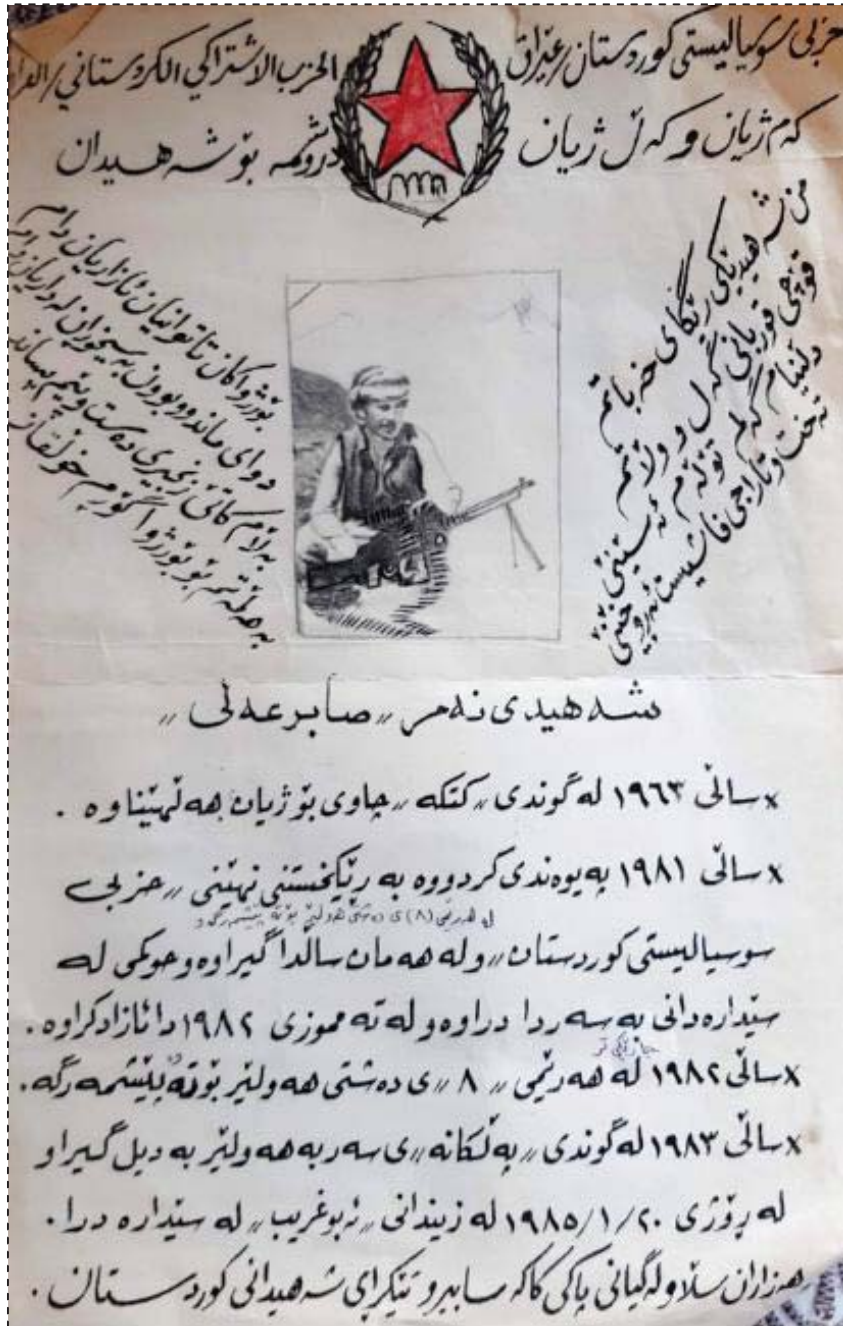 حزبی سوسیالیستی کوردستان/عێراق
الحزب الاشتراكي الكردستاني/
کەم ژیان و کەڵ ژیان
دروشمە بۆ شەهیدان
من شەهیدێکی ڕێگای خەباتم
قۆچی قوربانی گەل و وڵاتم
دڵنیام گەلم تۆڵەم ئەستێنێ
تەخت و تاراجی فاشیست
بۆرژواکان تا توانیان ئازاریان دام
دوای ماندووبوون بە سێخوڕان لە داریان
بەڵام کاتێ زنجیری دەست و پێم پساند
بە هەڵەتم بۆ بۆرژوا گۆڕم خوڵقاند
شەهیدی نەمر "صابر عەلی"
x ساڵی ١٩٦٣ لە گوندی "کتکە" چاوی بۆ ژیان هەڵهێناوە .
x ساڵی ١٩٨١ پەیوەندی کردووە بە ڕێکخستنی نهێنی "حزبی
لە هەرێمی (٨) ی دەشتی هەولێر بۆتە پێشمەرگە و
سوسیالیستی کوردستان" و لە هەمان ساڵدا گیراوە و حوکمی لە
سێدارەدانی بە سەردا دراوە و لە تەمموزی ١٩٨٢ دا ئازادکراوە.
جارێکی تر
x ساڵی ١٩٨٢ لە هەرێمی "٨" ی دەشتی هەولێر بۆتە پێشمەرگە.
x ساڵی ١٩٨٣ لە گوندی "پەڵکانە" ی سەر بە هەولێر بە دیل گیرا و
لە ڕۆژی ١٩٨٥/١/٢٠ لە زیندانی "ئەبوغریب" لە سێدارە درا.
هەزاران سڵاو لە گیانی پاکی کاکە سابیر و تێکڕای شەهیدانی کوردستان .